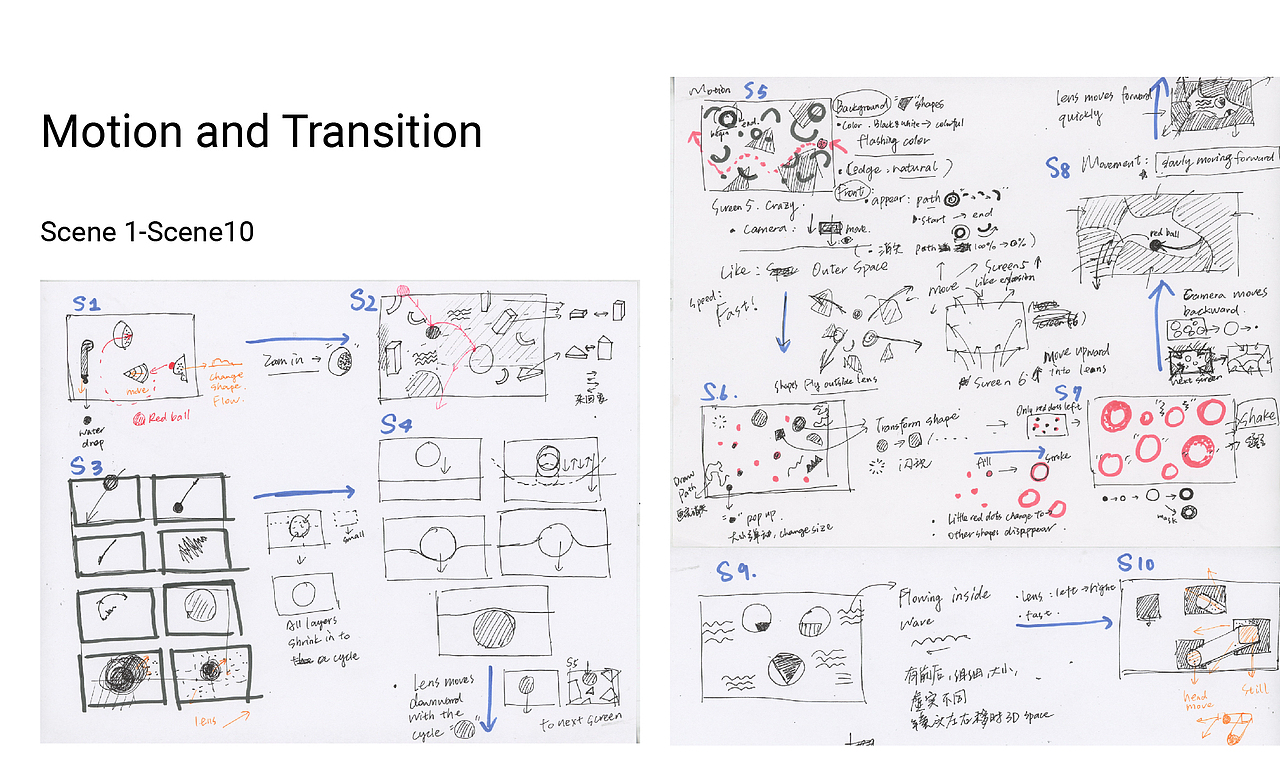 Motion and Transition
Scene 1-Scene10
S1
Zoom in →
move
change
shape.
Flow.
Red ball
water
drop
S2
来回穿
S3
small
All layers
shrink in to
a cycle
lens
S4
Lens moves
downward
with the
cycle
S5
to next screen
Motion S5
Background shapes
• Color. Black & white → colorful
flashing color
• (edge. natural)
Front:
• appear: path
start → end
begin
end.
Screen 5. Crazy.
• Camera: move.
path 100% → 0%)
Like: Outer Space
Speed:
Fast!
move
Screen 5 ↑
Like explosion
Shapes Fly outside lens
Screen 6:
Move upward
into leans
S6.
Transform shape
闪现
Draw
Path
pop up
change size
Only red dots left
S7
Shake
fill
stroke
• Little red dots change to
• Other shapes disappear.
mask
Lens moves forward
quickly
S8 Movement: slowly moving forward
red ball
Camera moves
backward.
next screen
S9.
Flowing inside
wave
有前后, 组组, 大小,
虚实不同
3D space
• Lens: left → right
• fast.
S10
head
move
still